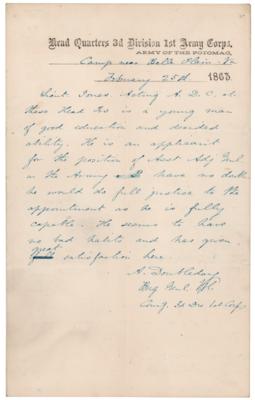 Head Quarters 3d Division 1st Army Corps,
ARMY OF THE POTOMAC,
Camp near Belle Plain Va
February 25th 1863.
Lieut Jones, Acting A. D. C. at
these Head Qrs is a young man
of good education and decided
ability. He is an applicant
for the position of Asst Adj Genl
in the Army. I have no doubt
he would do full justice to the
appointment as he is fully
capable. He seems to have
no bad habits and has given
great satisfaction here.
A. Doubleday
Brig Genl Vol.
Comg 3d Div 1st Corps